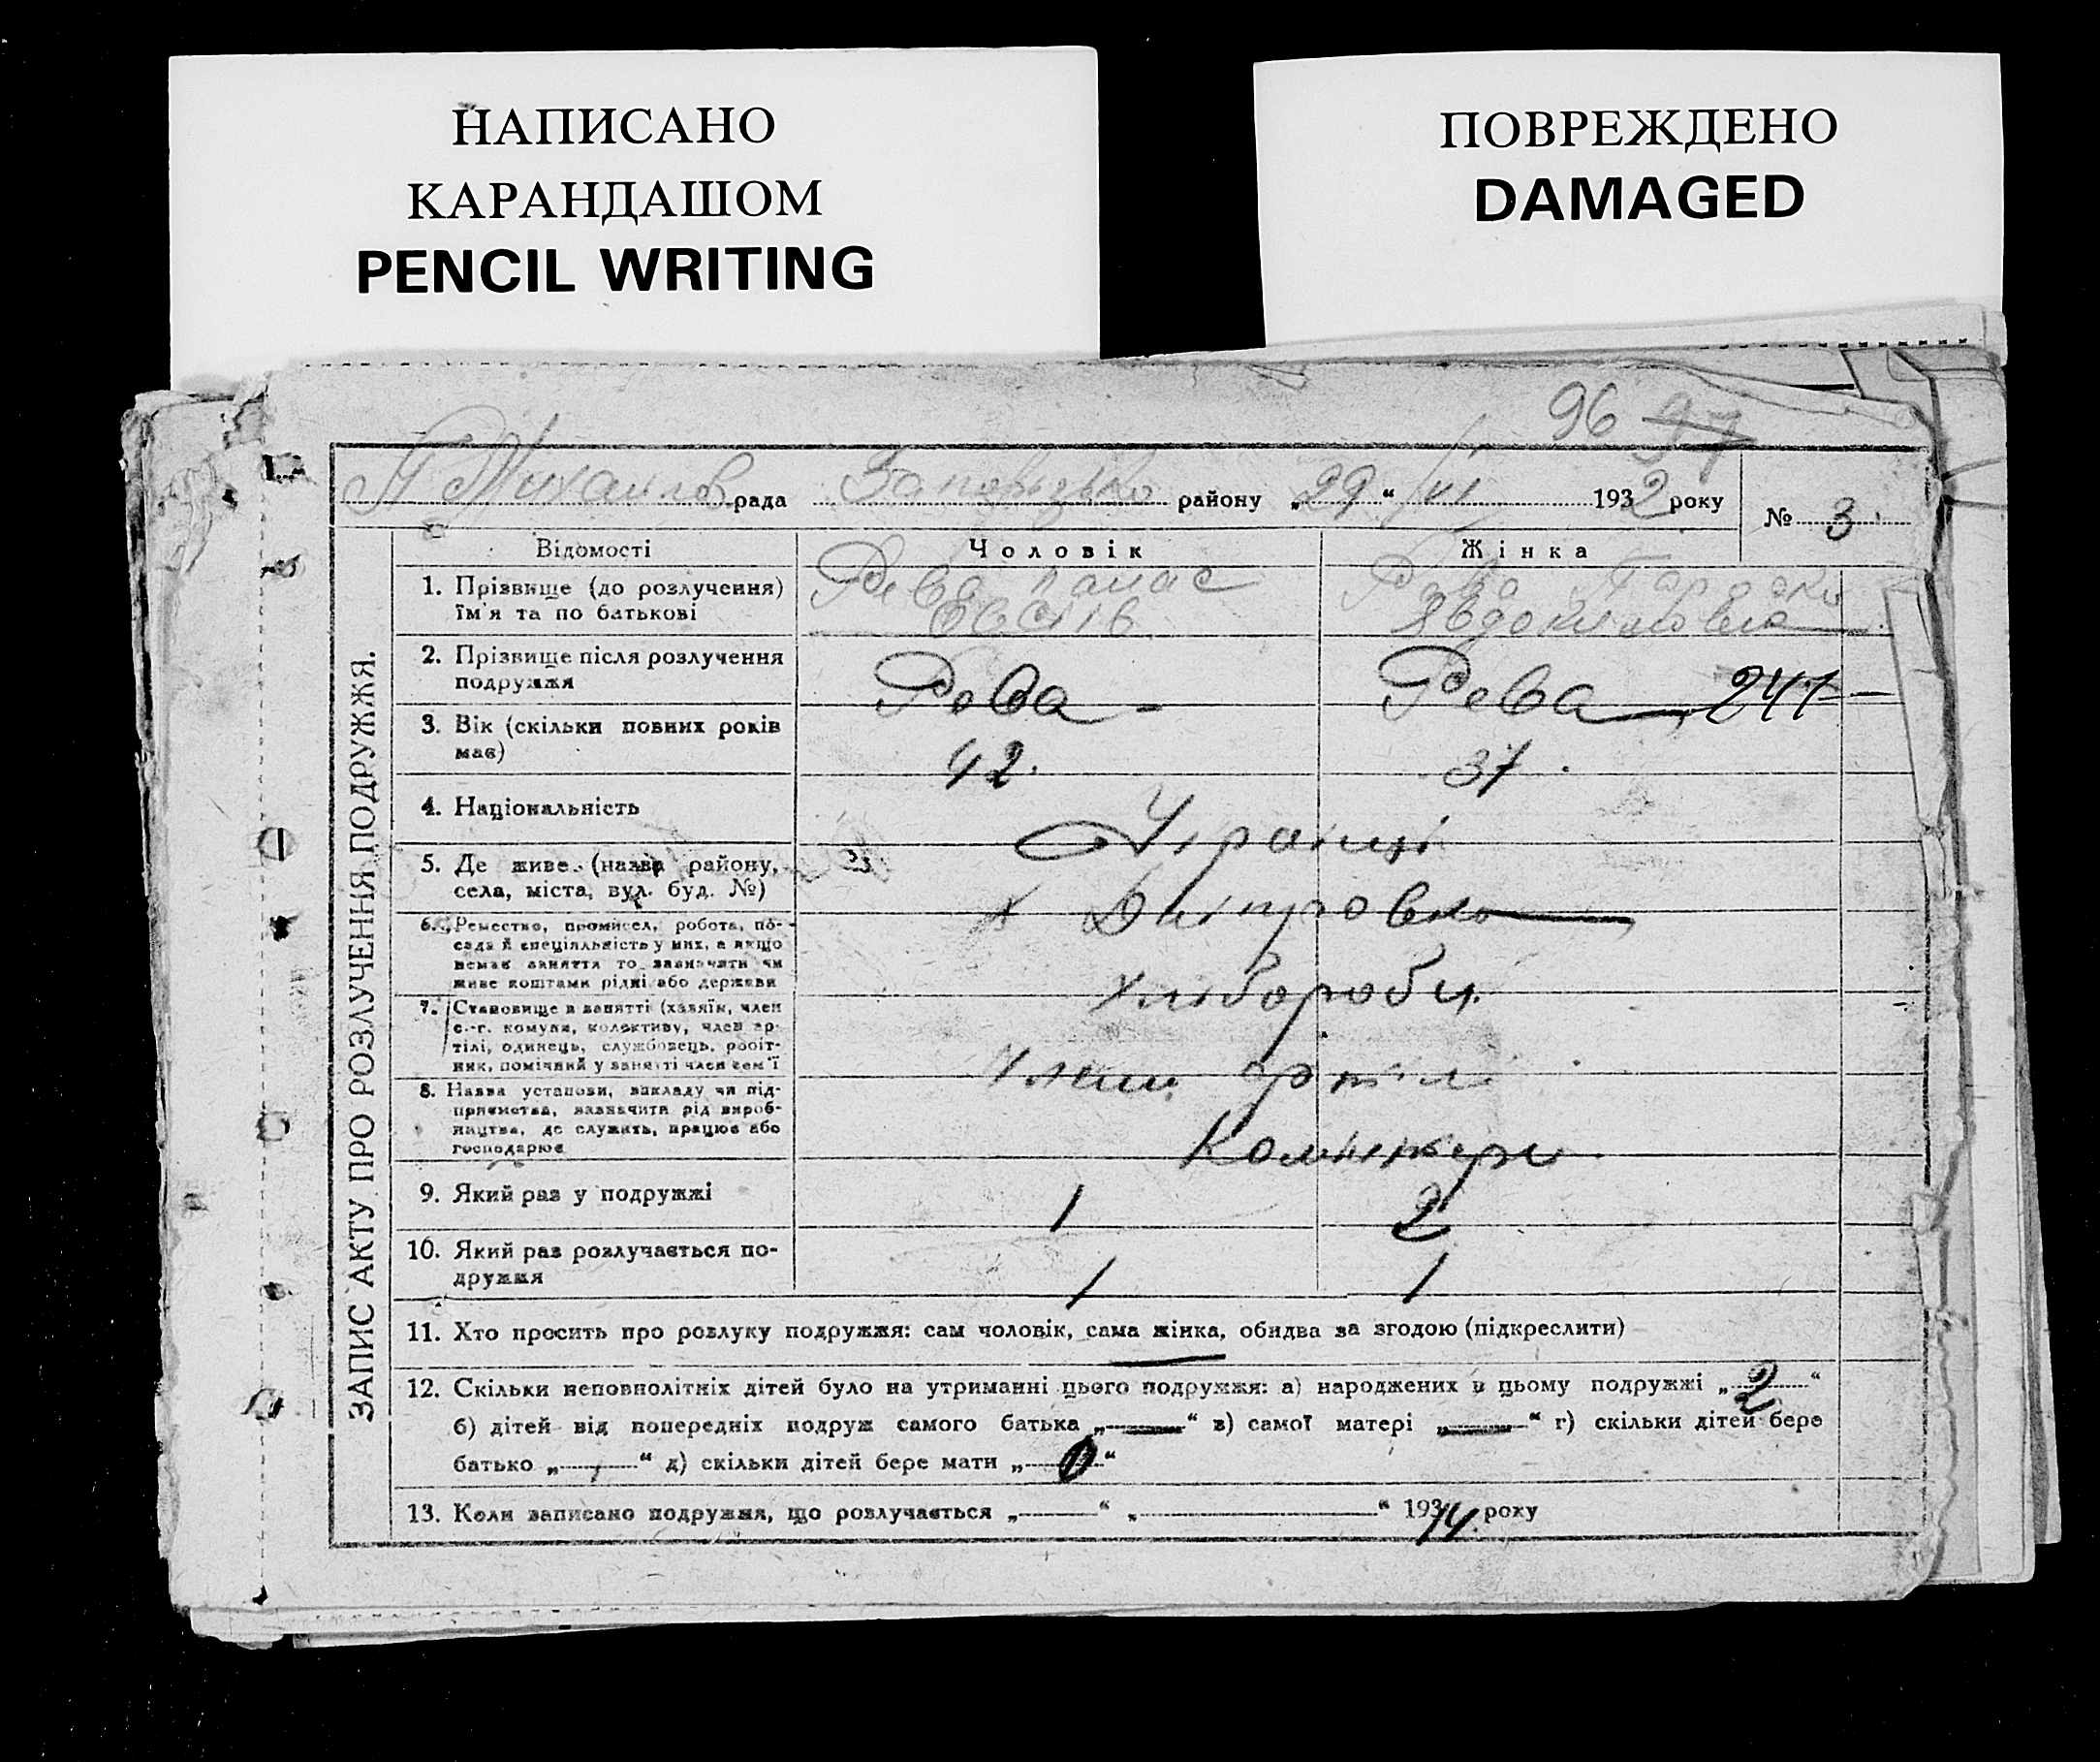 НАПИСАНО
КАРАНДАШОМ
PENCIL WRITING
ПОВРЕЖДЕНО
DAMAGED
96 97
рада району „29“ VI 1932 року № 3
ЗАПИС АКТУ ПРО РОЗЛУЧЕННЯ ПОДРУЖЖЯ.
Відомості Чоловік Жінка
1. Прізвище (до розлучення) Рева Панас Рева
їм'я та по батькові Явдокимовна
2. Прізвище після розлучення
подружжя Рева Рева 241
3. Вік (скільки повних років
має) 42 37
4. Національність Українці
5. Де живе (назва району,
села, міста, вул. буд. №) х Дніпровка
6. Ремество, промисел, робота, по-
сада й спеціяльність у них, а якщо
немає заняття то зазначити чи
живе коштами рідні або держави Хлібороби
7. Становище в занятті (хазяїн, член
с.-г. комуни, колективу, член ар-
тілі, одинець, службовець, робіт-
ник, помічний у занятті член сем'ї Члени артіл
8. Назва установи, викладу чи під-
приємства, зазначити рід вироб-
ництва, де служить, працює або
господарює
9. Який раз у подружжі 1 2
10. Який раз розлучається по-
дружжя 1 1
11. Хто просить про розлуку подружжя: сам чоловік, сама жінка, обидва за згодою (підкреслити)
12. Скільки неповнолітніх дітей було на утриманні цього подружжя: а) народжених в цьому подружжі „2“
б) дітей від попередніх подруж самого батька „—“ в) самої матері „—“ г) скільки дітей бере
батько „ “ д) скільки дітей бере мати „0“
13. Коли записано подружжя, що розлучається „ “ „ “ 1914 року